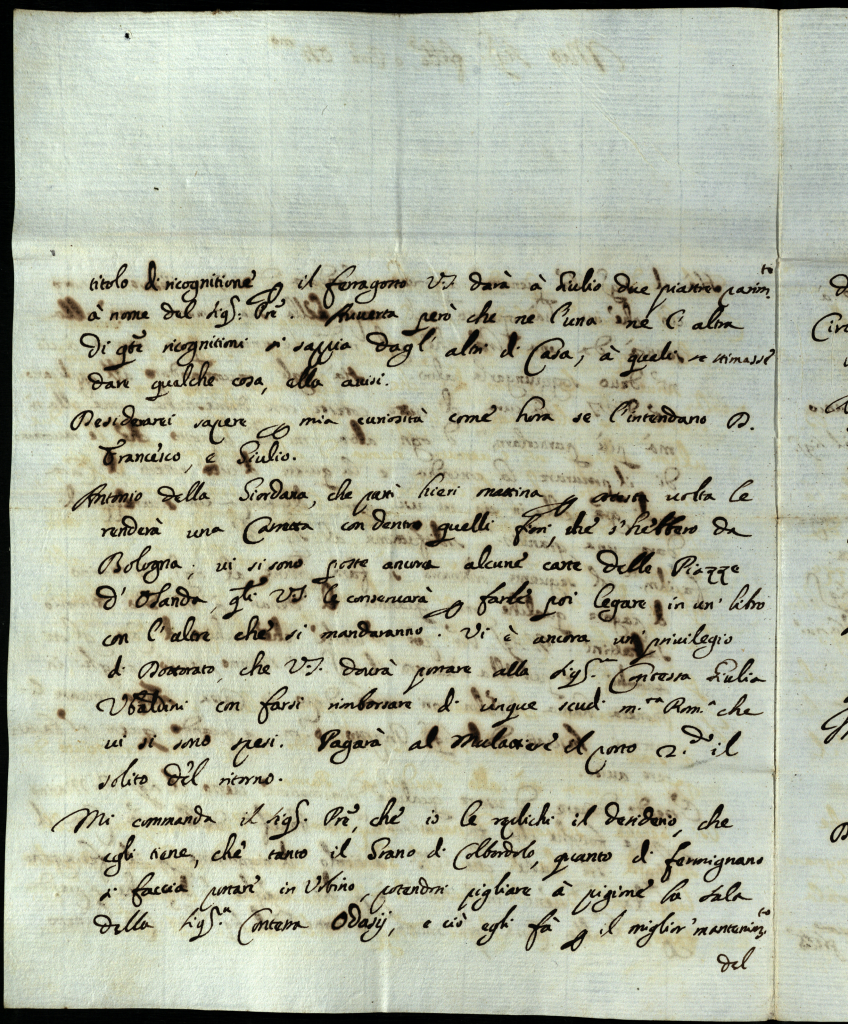 titolo di ricognitione p il ferragosto V.S. darà à Giulio due piastre parim.to
à nome del Sig.r Pre. Avverta però che ne l'una ne l'altra
di qte ricognitioni si sappia dagl'altri di Casa, à quali se stimasse
dare qualche cosa, ella avisi.
Desiderarei sapere p mia curiosità come hora se l'intendano D.
Francesco, e Giulio.
Antonio della Giordana, che partì hieri mattina p cotesta volta le
renderà una Cassetta con dentro quelli fiori, che s'hebbero da
Bologna; vi si sono poste ancora alcune carte delle Piazze
d'Olanda, qli V.S. le conservarà p farle poi legare in un' libro
con l'altre che si mandaranno. Vi è ancora un privilegio
di Dottorato, che V.S. dovrà portare alla Sig.ra Contessa Giulia
Ubaldini con farsi rimborsare di cinque scudi m.ta Rom.a che
vi si sono spesi. Pagarà al Mulattiere il porto 2.do il
solito del ritorno.
Mi commanda il Sig.r Pre, che io le replichi il desiderio, che
egli tiene, che tanto il Grano di Colbordolo, quanto di fermignano
si faccia portare in Urbino, potendosi pigliare à pigione la Sala
della Sig.ra Contessa Odasij, e ciò egli fà p il miglior' mantenim.to
del